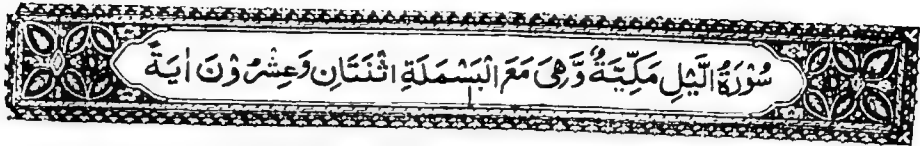 سُوْرَةُ الَّيْلِ مَكِّيَّةٌ وَّهِىَ مَعَ الْبَسْمَلَةِ اثْنَتَانِ وَعِشْرُوْنَ اٰيَةً